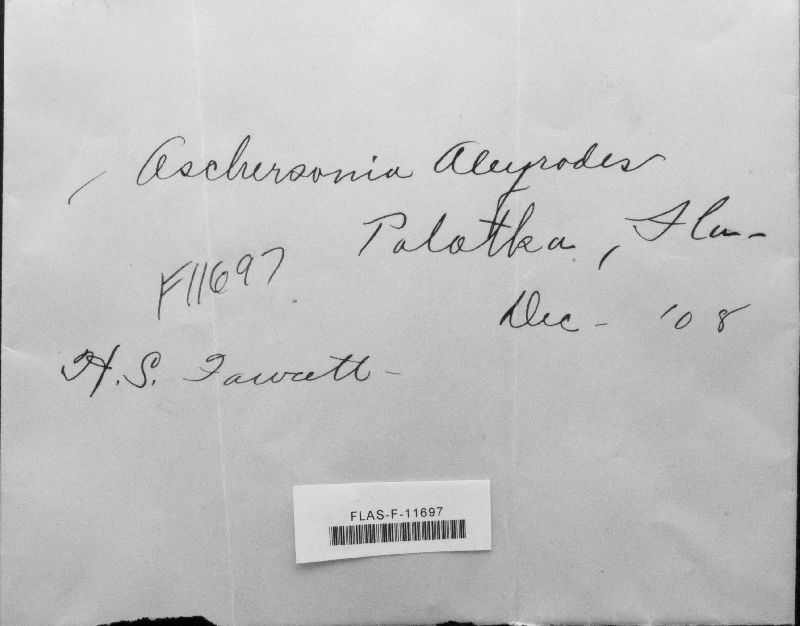 Aschersonia Aleyrodes
Palatka, Fla-
F11697
Dec - '08
H.S. Fawcett-
FLAS-F-11697